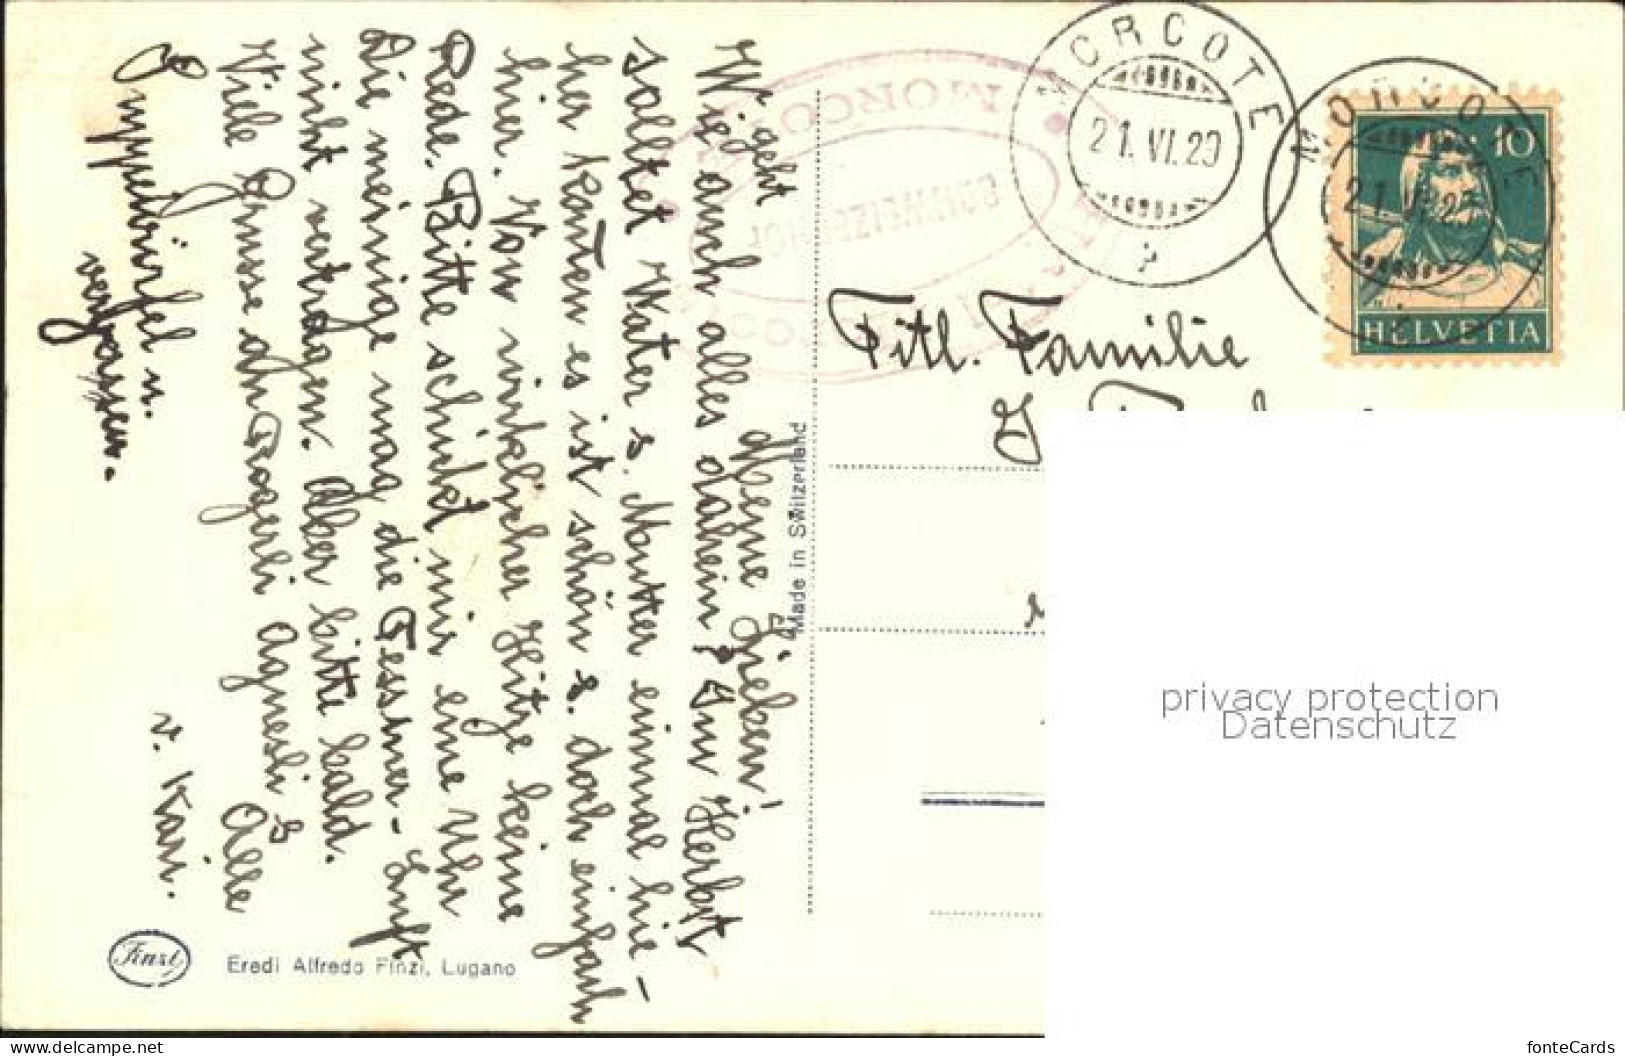 Meine Lieben!
Wie geht
auch alles daheim? Im Herbst
solltet Vater u. Mutter einmal hie-
her kommen es ist schön u. doch einfach
hier. Von wirklicher Hitze keine
Rede. Bitte schickt mir eine Uhr
Die meinige mag die Tessiner-Luft
nicht vertragen. Aber bitte bald.
Viele Grüsse an Rogerli Agnesli &
Alle
v. Kari.
Suppenwürfel n.
vergessen.
Eredi Alfredo Finzi, Lugano
Finzi
Made in Switzerland
MORCOTE
21.VI.29
MORCOTE
21.VI.29
MORCOTE
SCHWEIZERHOF
10
HELVETIA
Titl. Familie
privacy protection
Datenschutz
delcampe.net/Website
fonteCards